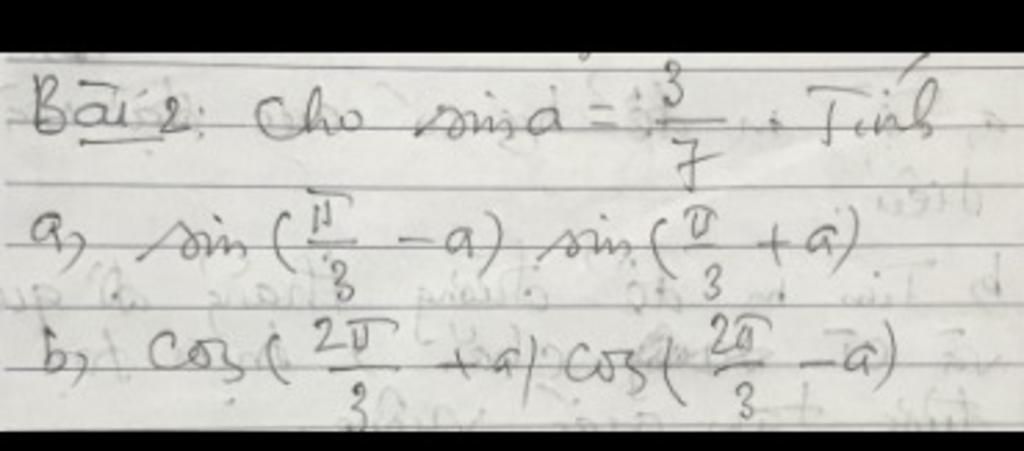 Bài 2: Cho sin a = 3/7. Tính
a, sin (π/3 - a) sin (π/3 + a)
b, cos (2π/3 + a) cos (2π/3 - a)